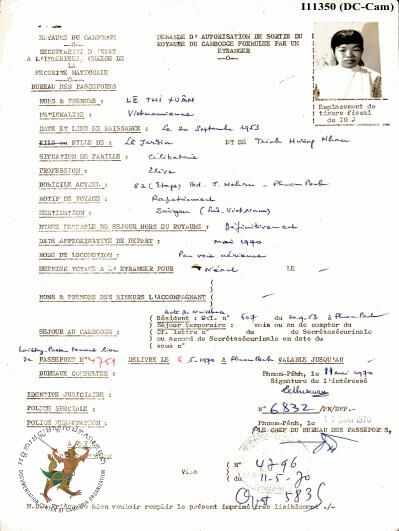 I11350 (DC-Cam)
ROYAUME DU CAMBODGE
SECRETARIAT D'ETAT
A L'INTERIEUR, CHARGE DE
LA
SECURITE NATIONALE
BUREAU DES PASSEPORTS
DEMANDE D'AUTORISATION DE SORTIE DU
ROYAUME DU CAMBODGE FORMULEE PAR UN
ETRANGER
Emplacement de
timbre fiscal
de 10
NOMS & PRENOMS : LÊ THỊ XUÂN
NATIONALITE : Vietnamienne
DATE ET LIEU DE NAISSANCE : Le 20 Septembre 1953
FILS ou FILLE DE : ET DE Trinh
SITUATION DE FAMILLE : Célibataire
PROFESSION : Elève
DOMICILE ACTUEL : 82 (Etage) Bd. J. Nehru - Phnom Penh
MOTIF DE VOYAGE : Rapatriement
DESTINATION : Saigon
DUREE PROBABLE DE SEJOUR HORS DU ROYAUME : Définitivement
DATE APPROXIMATIVE DE DEPART : mai 1970
MODE DE LOCOMOTION : Par voie aérienne
DERNIER VOYAGE A L'ETRANGER POUR Néant LE -
NOMS & PRENOMS DES MINEURS L'ACCOMPAGNANT -
Acte de Naissance
Résident : 507 du 20.9.53 à Phnom Penh
Séjour temporaire : mois ou an de compter du
SEJOUR AU CAMBODGE : Cf. lettre n° du de Secrétasécurinale
ou accord Secrétasécurinale en date du
sous n°
Laissez-Passer tenant lieu
de PASSEPORT N° 4759 DELIVRE LE 6.5.1970 à Phnom Penh VALABLE JUSQU'AU
BUREAUX CONSULTES : Phnom-Pénh, le 11 mai 1970
Signature de l'intéressé
IDENTITE JUDICIAIRE :
POLICE SPECIALE : N° 6832 /PN/BPP.-
POLICE Phnom-Pénh, le 11 MAI 1970
LE CHEF DU BUREAU DES PASSEPORTS,
Visa
(N° 4796
(du 11-5-70
5836
DOCUMENTATION CENTER OF CAMBODIA ORGANIZATION
N.D. Prière de bien vouloir remplir le présent imprimé très lisiblement ./-